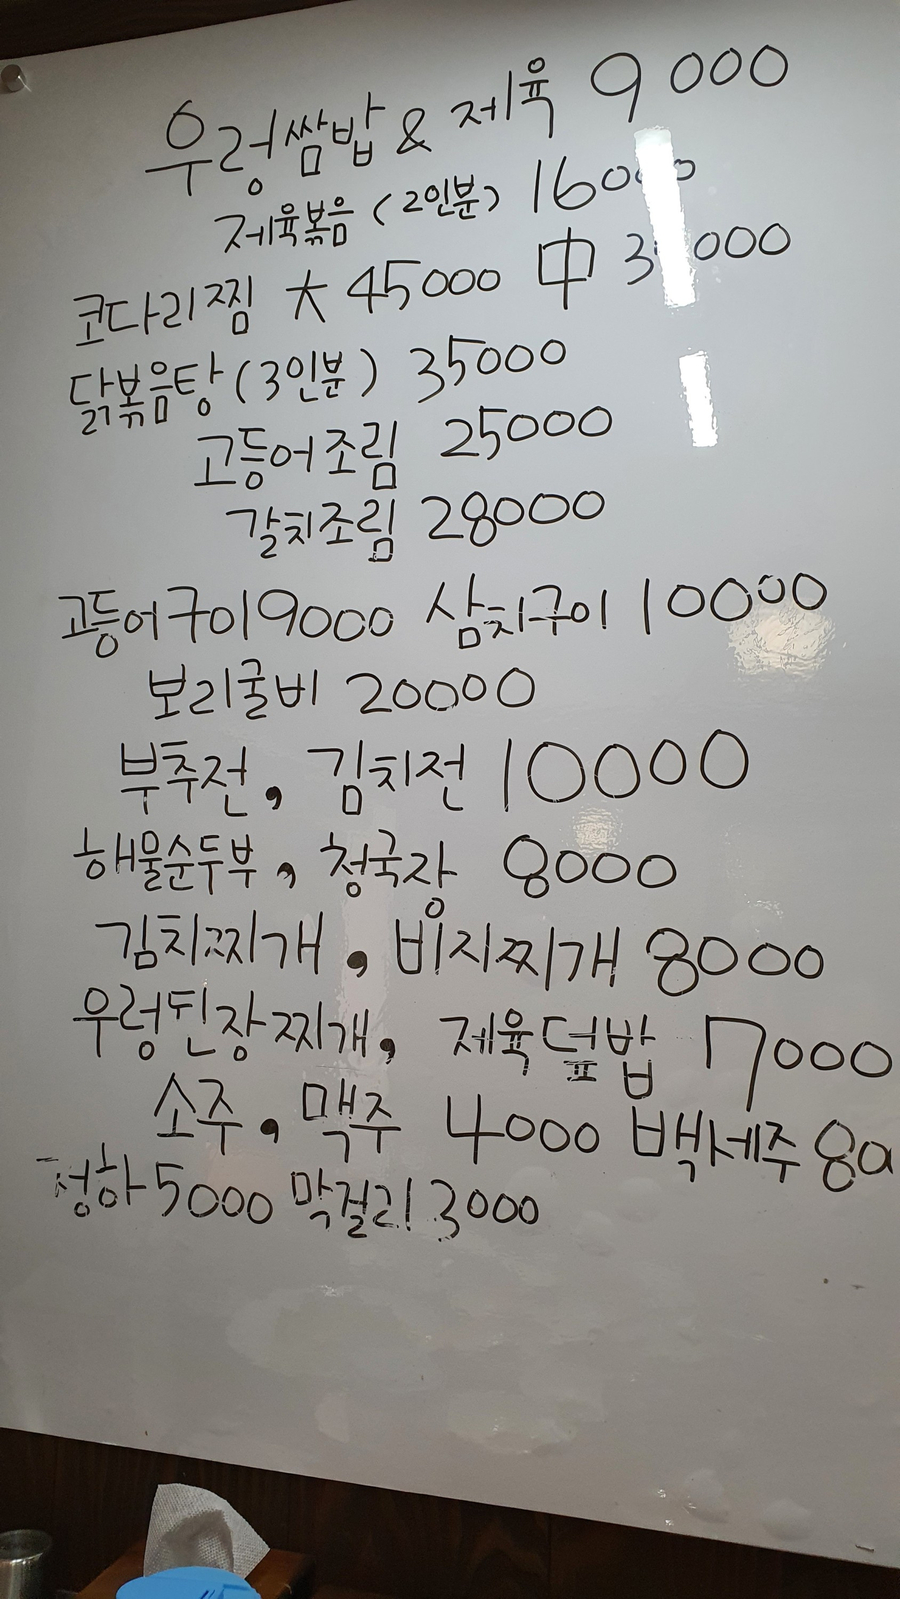 우렁쌈밥 & 제육 9000
제육볶음 (2인분) 16000
코다리찜 大 45000 中
닭볶음탕 (3인분) 35000
고등어조림 25000
갈치조림 28000
고등어구이 9000 삼치구이 10000
보리굴비 20000
부추전, 김치전 10000
해물순두부, 청국장 8000
김치찌개, 비지찌개 8000
우렁된장찌개, 제육덮밥 7000
소주, 맥주 4000 백세주
청하 5000 막걸리 3000